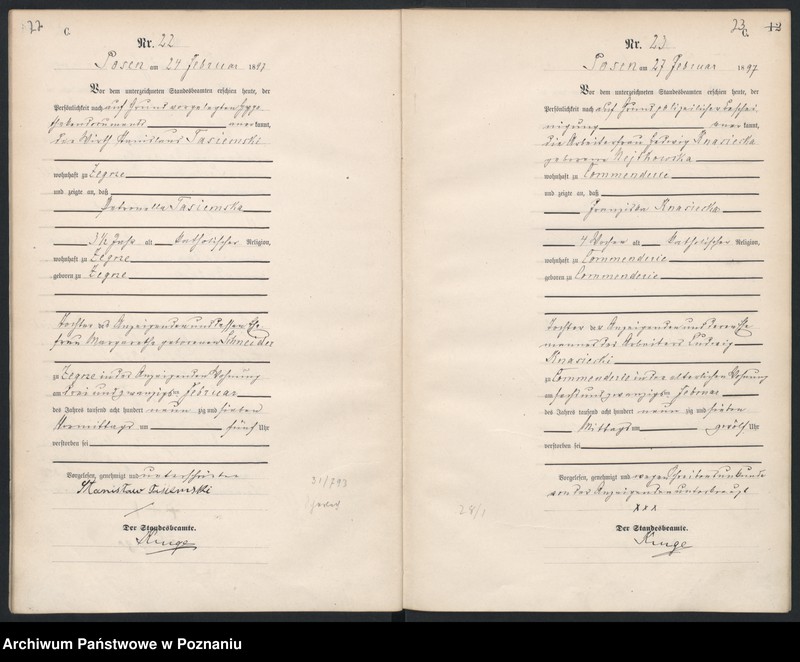 22
C.
Nr. 22
Posen am 24 Februar 1897
Vor dem unterzeichneten Standesbeamten erschien heute, der
Persönlichkeit nach auf Grund vorgelegten Hypo
thekendokuments anerkannt,
der Wirth Stanislaus Tasiemski
wohnhaft zu Zegrze
und zeigte an, daß
Petronella Tasiemska
3½ Jahr alt katholischer Religion,
wohnhaft zu Zegrze
geboren zu Zegrze
Tochter des Anzeigenden und dessen Ehe
frau Margarethe geborenen Schneider
zu Zegrze in des Anzeigenden Wohnung
am drei und zwanzigsten Februar
des Jahres tausend acht hundert neunzig und sieben
Vormittags um fünf Uhr
verstorben sei
Vorgelesen, genehmigt und unterschrieben
Stanisław Tasiemski
Der Standesbeamte.
Kruge
31/793
23
C.
12
Nr. 23
Posen am 27 Februar 1897
Vor dem unterzeichneten Standesbeamten erschien heute, der
Persönlichkeit nach auf Grund polizeilicher Beschei
nigung anerkannt,
die Arbeiterfrau Hedwig Knasiecka
geborene
wohnhaft zu Commenderie
und zeigte an, daß
Franziska Knasiecka
4 Wochen alt katholischer Religion,
wohnhaft zu Commenderie
geboren zu Commenderie
Tochter der Anzeigenden und deren Ehe
mannes des Arbeiters Ludwig
Knasiecki
zu Commenderie in der elterlichen Wohnung
am sechs und zwanzigsten Februar
des Jahres tausend acht hundert neunzig und sieben
Mittags um zwölf Uhr
verstorben sei
Vorgelesen, genehmigt und wegen Schreibensunkunde
von der Anzeigenden unterkreuzt
x x x
Der Standesbeamte.
Kruge
28/1
Archiwum Państwowe w Poznaniu